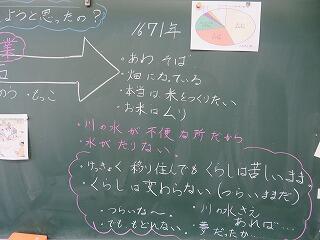 ようと思ったの？
1671年
業
・あわ そば
・畑になっている
・本当は米をつくりたい
・お米はムリ
・川の水が不便な所だから
水がたりない。
・けっきょく移り住んでもくらしは苦しいまま
・くらしは変わらない(つらいままだ)
・つらいな〜
・でももどれない。
・川の水さえ
あれば…
夢だったか